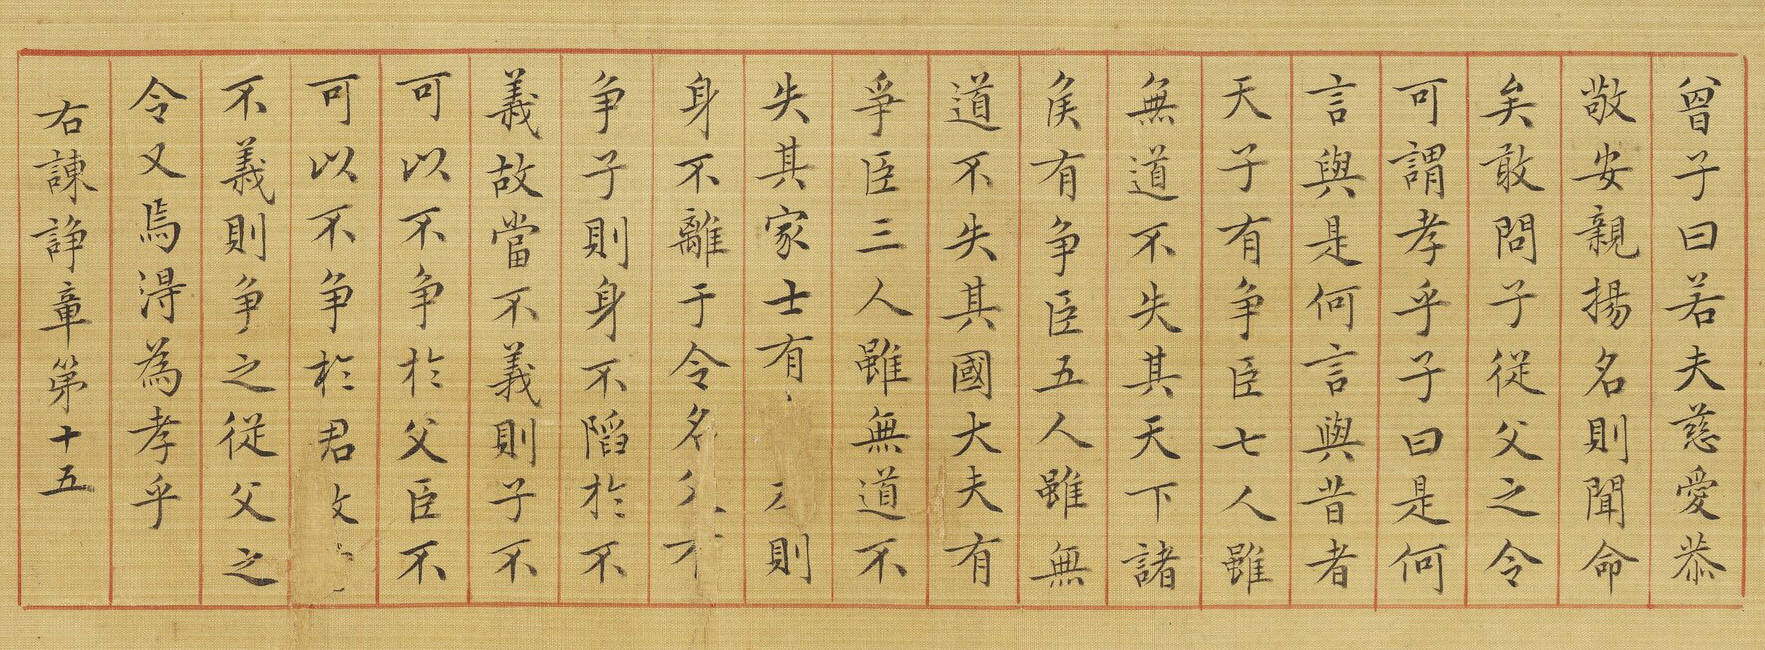 曾子曰若夫慈愛恭
敬安親揚名則聞命
矣敢問子從父之令
可謂孝乎子曰是何
言與是何言與昔者
天子有争臣七人雖
無道不失其天下諸
侯有争臣五人雖無
道不失其國大夫有
爭臣三人雖無道不
失其家士有則
身不離于令名父
争子則身不陷於不
義故當不義則子不
可以不争於父臣不
可以不争於君故
不義則争之從父之
令又焉得為孝乎
右諫諍章第十五